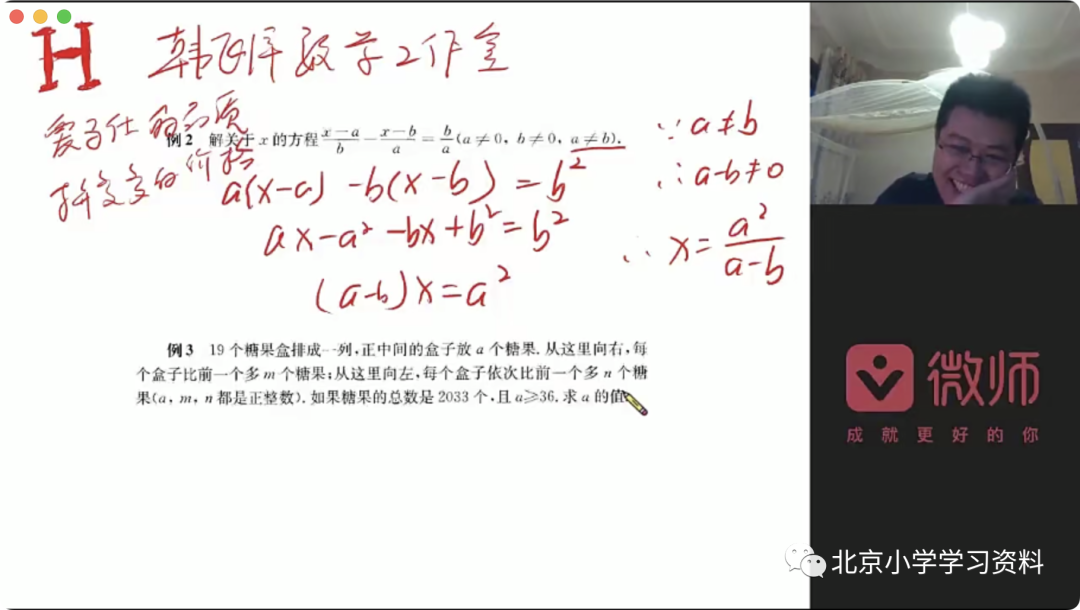 H 韩飞库数学工作室
爱马仕的品质
拼多多的价格
例2 解关于 x 的方程 \frac{x-a}{b} - \frac{x-b}{a} = \frac{b}{a} (a≠0, b≠0, a≠b).
a(x-a) -b(x-b) = b²
ax-a²-bx+b²=b²
(a-b)x=a²
∵ a≠b
∴ a-b≠0
∴ x = \frac{a²}{a-b}
例3 19个糖果盒排成一列,正中间的盒子放 a 个糖果. 从这里向右,每
个盒子比前一个多 m 个糖果;从这里向左,每个盒子依次比前一个多 n 个糖
果(a, m, n 都是正整数). 如果糖果的总数是 2033 个,且 a≥36. 求 a 的值
微师
成就更好的你
北京小学学习资料